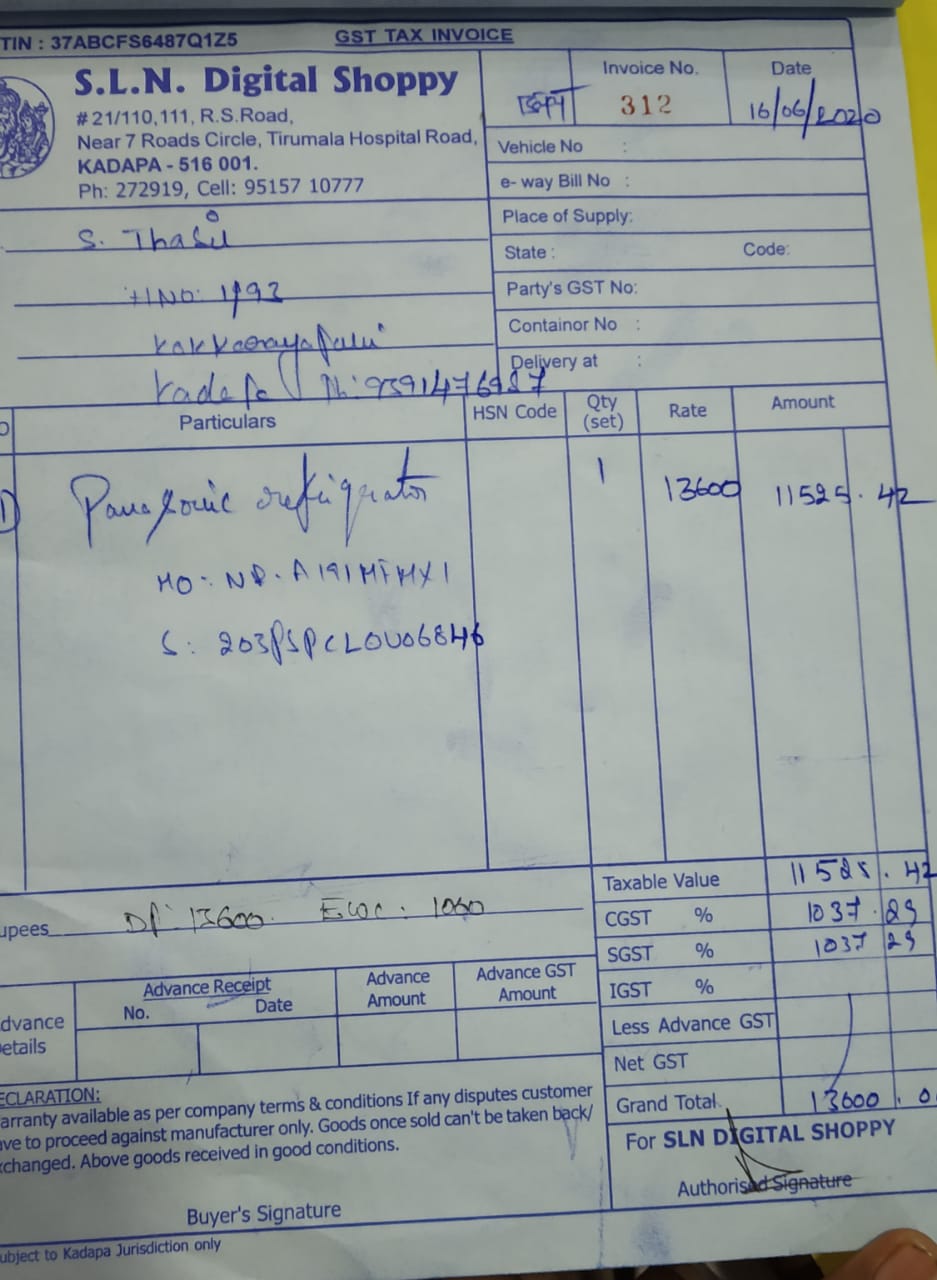 TIN : 37ABCFS6487Q1Z5
GST TAX INVOICE
S.L.N. Digital Shoppy
# 21/110,111, R.S.Road,
Near 7 Roads Circle, Tirumala Hospital Road,
KADAPA - 516 001.
Ph: 272919, Cell: 95157 10777
Invoice No.
312
Date
16/06/2020
Vehicle No :
e- way Bill No :
Place of Supply:
State : Code:
Party's GST No:
Containor No :
Delivery at :
S. Thasil
HNO: 1/93
Kadapa Ph: 9391476987
Particulars HSN Code Qty (set) Rate Amount
1) Panasonic refrigrator 1 13600 11525.42
MO: NR-A191MFMX1
S: 203PSPCLOU06846
Taxable Value 11525.42
upees DP: 13600. EWC: 1000
CGST % 1037.29
SGST % 1037 29
IGST %
Less Advance GST
Net GST
Grand Total 13600.0
dvance
etails
Advance Receipt
No. Date
Advance Amount
Advance GST Amount
ECLARATION:
arranty available as per company terms & conditions If any disputes customer
ave to proceed against manufacturer only. Goods once sold can't be taken back/
xchanged. Above goods received in good conditions.
For SLN DIGITAL SHOPPY
Authorised Signature
Buyer's Signature
ubject to Kadapa Jurisdiction only